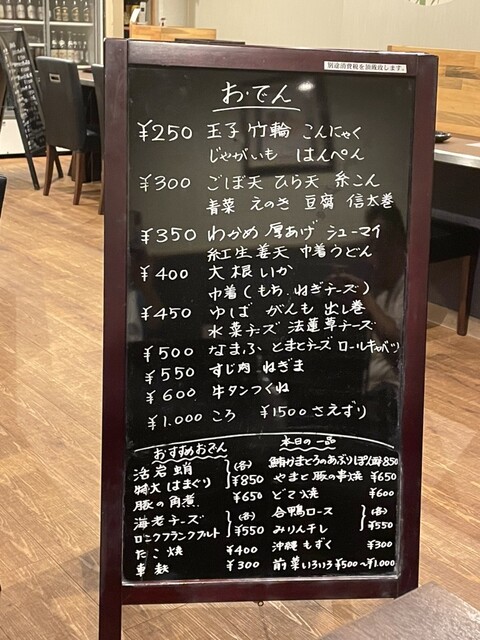 別途消費税を頂戴致します。
おでん
¥250 玉子 竹輪 こんにゃく
じゃがいも はんぺん
¥300 ごぼ天 ひら天 糸こん
青菜 えのき 豆腐 信太巻
¥350 わかめ 厚あげ シューマイ
紅生姜天 巾着うどん
¥400 大根 いか
巾着(もち、ねぎチーズ)
¥450 ゆば がんも 出し巻
水菜チーズ 法蓮草チーズ
¥500 なまふ とまとチーズ ロールキャベツ
¥550 すじ肉 ねぎま
¥600 牛タンつくね
¥1.000 ころ ¥1500 さえずり
おすすめおでん
活岩蛸 (各)
特大はまぐり ¥850
豚の角煮 ¥650
海老チーズ (各)
ロングフランクフルト ¥550
たこ焼 ¥400
車麸 ¥300
本日の一品
鮪かまとろのあぶりぽん酢 850
やまと豚の串焼 ¥650
どて焼 ¥600
合鴨ロース (各)
みりん干し ¥550
沖縄もずく ¥300
前菜いろいろ ¥500〜¥1.000